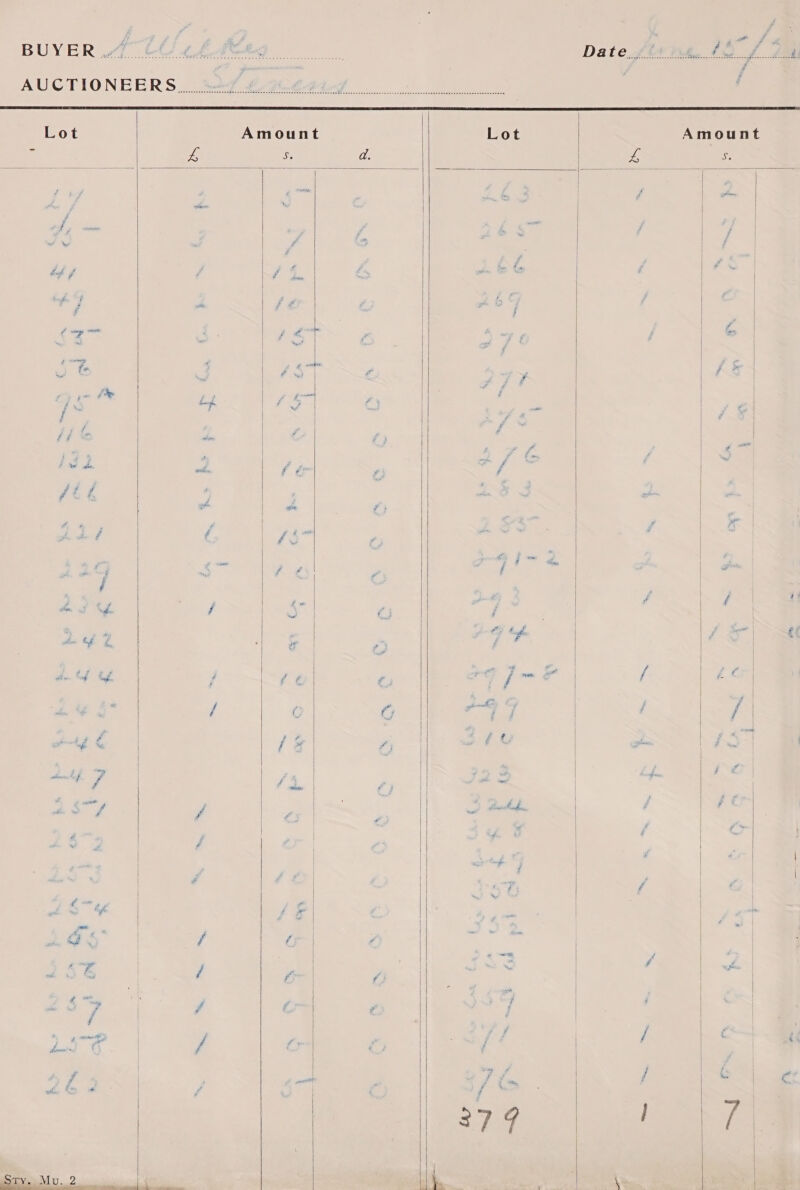 BUYER A Wilkes Date June 15/
AUCTIONEERS Stevens
Lot Amount Lot Amount
£ s. d. £ s.
27 2 5 0 263 1 2
35 3 7 6 265 1 7
41 1 12 6 266 1 15
49 2 10 0 269 1 0
53 3 15 6 270 1 6
56 3 15 0 271 18
95 4 15 0 275 18
116 2 0 0 276 1 5
132 2 10 0 283 2 2
166 2 2 0 285 1 8
221 6 15 0 291-2 2 2
229 5 10 0 293 1 1
234 1 5 0 294 18
242 8 0 297-8 1 10
244 1 10 0 299 1 7
245 1 0 0 310 2 15
246 18 0 323 4 10
247 12 0 324 1 10
251 1 0 0 348 1 0
252 1 0 0 349 1 0
253 1 10 0 350 1 0
254 18 0 352 15
255 1 0 0 353 1 2
256 1 0 0 359 1 0
257 1 0 0 371 1 0
258 1 0 0 376 1 6
262 1 5 0 379 1 7
STY. MU. 2